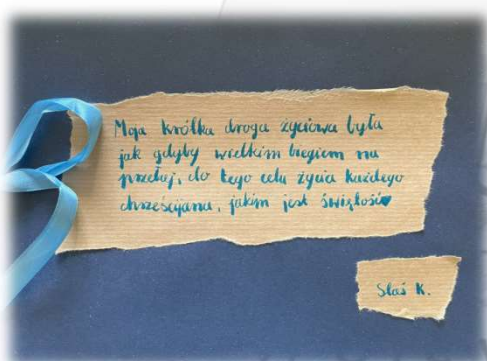 Moja krótka droga życiowa była
jak gdyby wielkim biegiem na
przełaj, do tego celu życia każdego
chrześcijana, jakim jest świętość
Staś K.